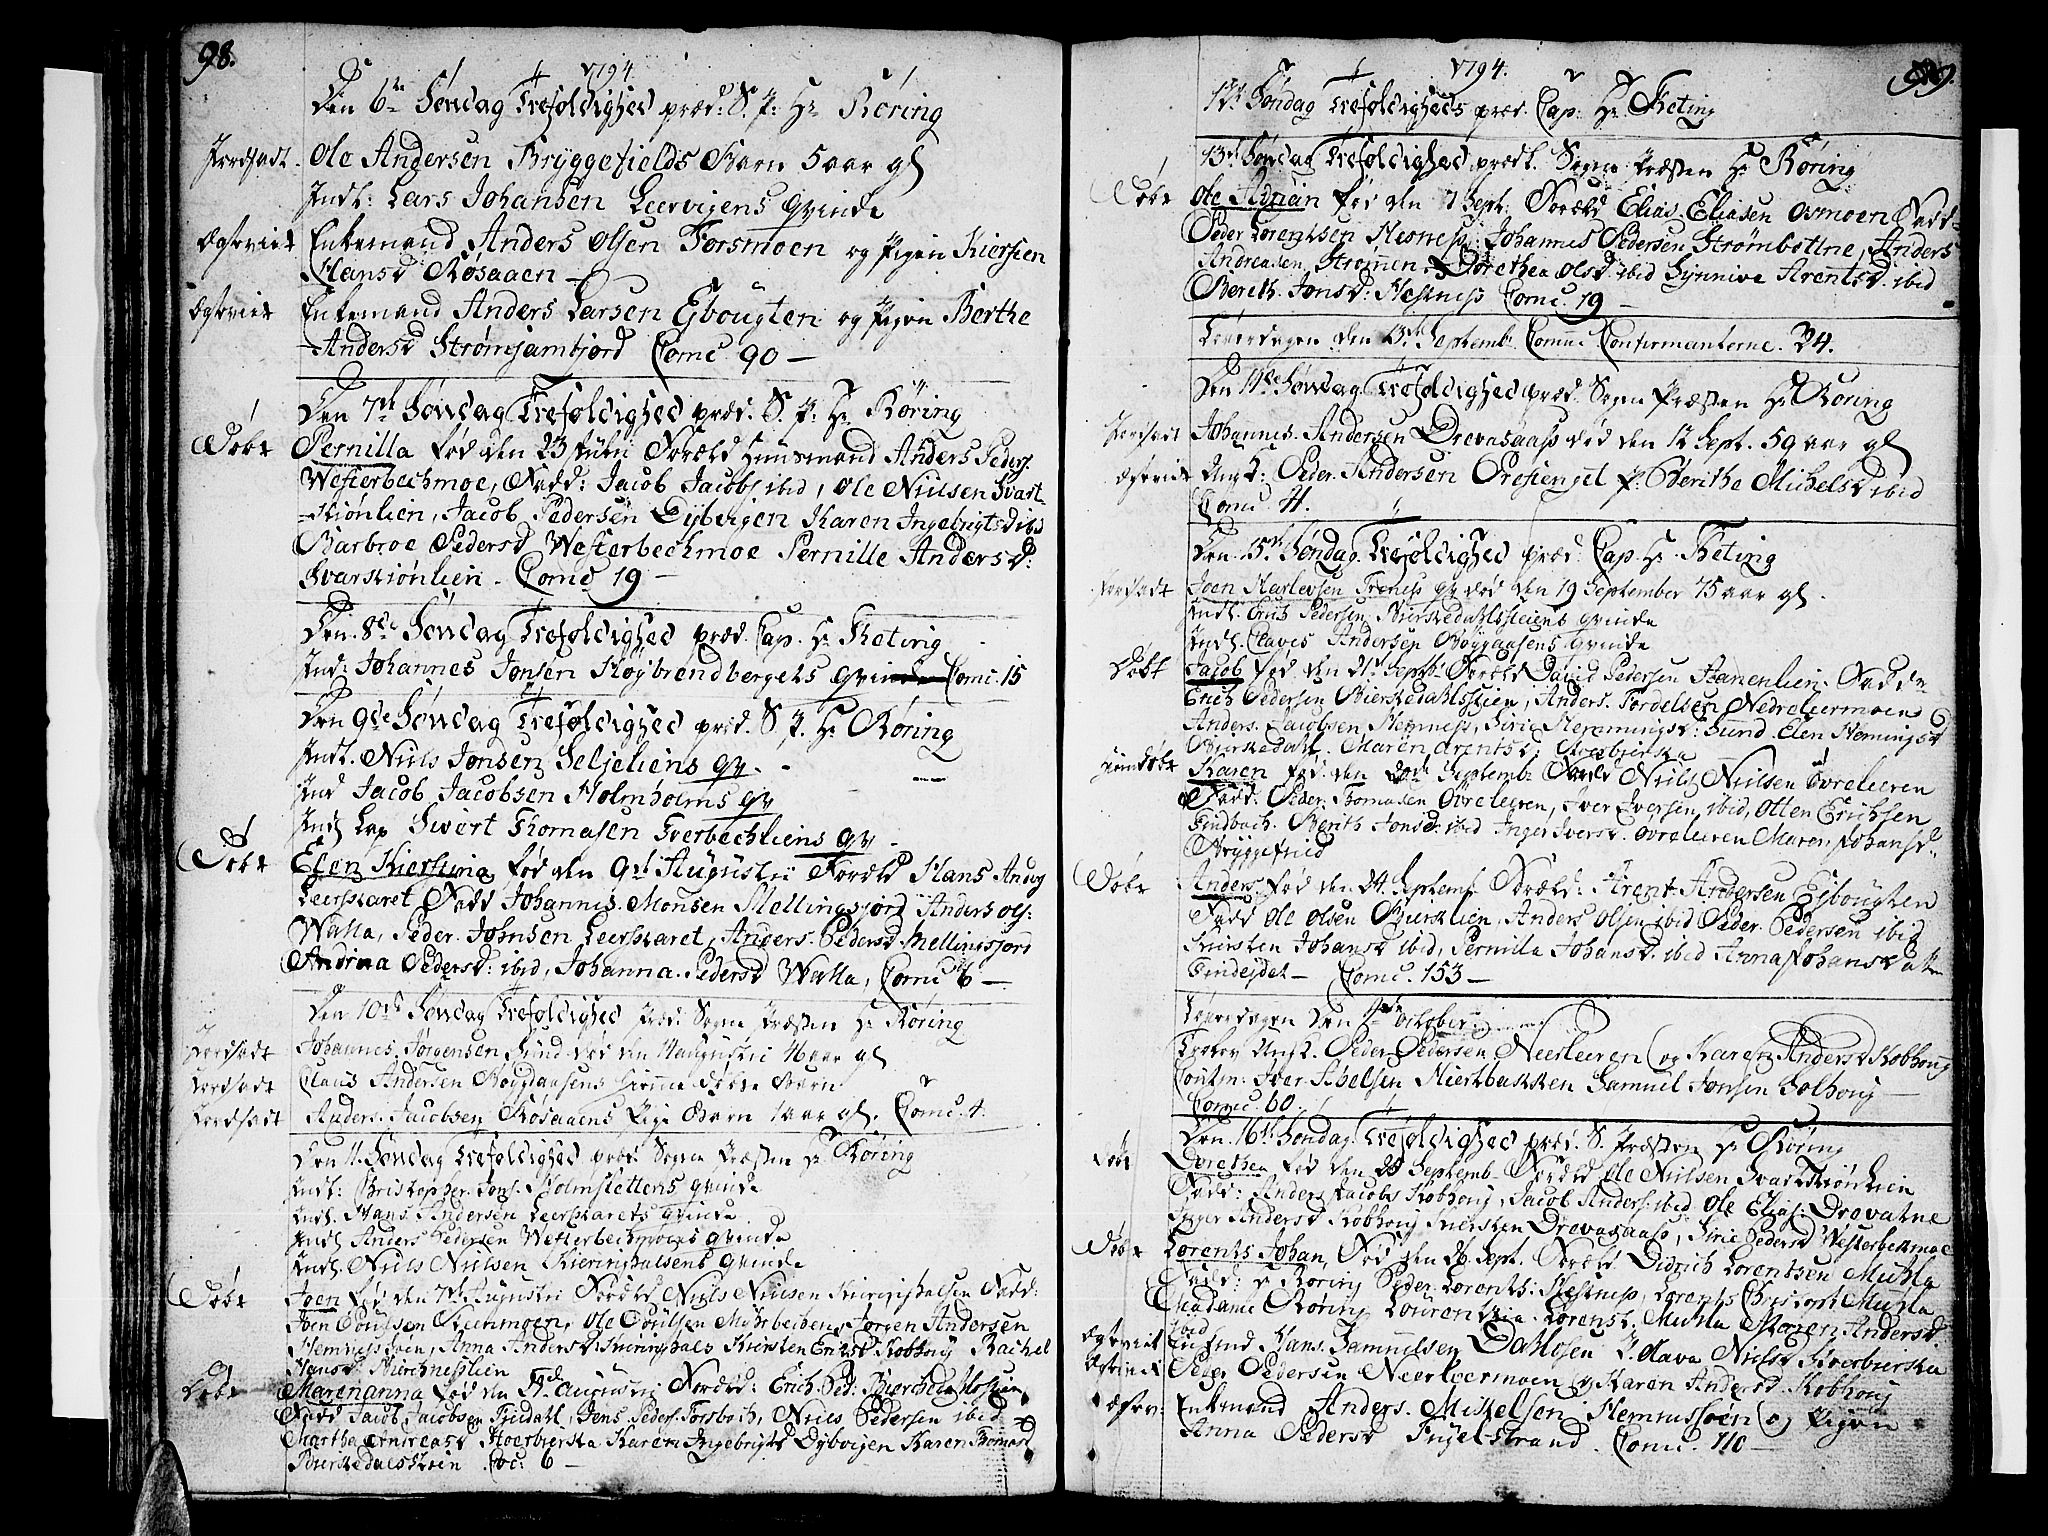 98.
1794.
Den 6te Søndag Trefoldighed præd: S. P. Hr Røring
Jordsadt. Ole Andersen Bryggefields Barn 5 aar gl
Indl: Lars Johansen Leervigens Qvinde
Egteviet Enkemand Anders Olsen Forsmoen og Pigen Kiersten
Hansd Røsaaen
Egteviet Enkemand Anders Larsen Ejbougten og Pigen Berthe
Andersd Strømjamfjord Comc 90
Den 7de Søndag Trefoldighed præd. S. P. Hr Røring
Døbt Pernilla fød den 23 Julii Foræld Huusmand Anders Peders:
Westerbechmoe, Fadd: Jacob Jacobs. ibid, Ole Nielsen Svart
tiønlien, Jacob Pedersen Dybvigen Karen Ingebrigtsd ibd
Barbroe Pedersd Westerbechmoe Pernille Andersd:
Svartiønlien. Comc 19
Den 8de Søndag Trefoldighed præd. Cap. Hr Heting
Ind: Johannes Jonsen Høybrendbergets Comc. 15
Den 9de Søndag Trefoldighed præd. S. P. Hr Røring
Indl. Niels Jonsen Seljeliens qv.
Ind Jacob Jacobsen Holmholms qv
Indl Lap Sivert Thomasen Tverbechliens qv
Døbt Elen Kierstina fød den 9de Augustii Foræld Hans Anders
Leerskaret Fadd Johannes Monsen Mellingsjord Anders Ols:
Walla, Peder Johnsen Leerskaret, Anders Pedersd Mellingsjord
Andrina Pedersd: ibid, Johanna Pedersd Walla, Comc 6
Den 10de Søndag Trefoldighed Præd: Sogne Præsten Hr Røring
Jordsadt Johannes Jørgensen Sund død den Augustii aar gl
Jordsadt Claus Andersen Røygdaasens hiemme døbte Barn
Jordsadt Anders Jacobsen Røsaaens Pige Barn 1 aar gl. Comc. 4.
Den 11. Søndag Trefoldighed præd: Sogne Præsten Hr Røring
Indl: Christopher Jons. Holmslettens Qvinde
Indl. Hans Andersen Leerskarets Qvinde
Indl Anders Pedersen Westerbechmoens Qvinde
Indl. Niels Nielsen Kieringhalsens Qvinde
Døbt Joen fød den 7de Augustii Foræld Niels Nielsen Kieringhalsen Fadd:
Joen Poulsen Steenmoen, Ole Poulsen Myhrbechen, Jørgen Andersen
Hemnesøen, Anna Andersd Kieringhals Kiersten Ericsd Kobhoug Rachel
Hansd Biercknesslien
Døbt Marenanna fød den Augustii Foræld: Erich Ped: Bierchedahlsteien
Fadd Jacob Jacobsen Fieldahl, Jens Peders. Forsbach, Niels Pedersen ibid
Martha Andreasd Hverbierska Karen Ingebrigtd Dybvigen Karen Thomasd
Bierkedalsteien Co: 6
99.
1794.
12te Søndag Trefoldigheds præd. Cap: Hr. Heting
13de Søndag Trefoldighed prædt. Sogne Præsten Hr Røring
Døbt Ole Adrian fød den 7 Sept: Foræld Elias Eliasen Osmoen Fadd
Peder Lorentsen Hesness: Johannes Pedersen Strømbottne, Anders
Andreasen Strømmen, Dorethea Olsd ibid Synnive Arentsd: ibid
Berith Jonsd: Hesness Comc. 19
Løverdagen den 13de Septemb: Comuc Confirmanterne. 34.
Den 14de Søndag Trefoldighed præd. Sogne Præsten Hr Røring
Jordsadt Johannes Andersen Drevasaas død den 12 Sept. 59 aar gl
Egteviet Ungk: Peder Andersen Presienget P. Berithe Michelsd ibid
Comc. 41.
Den 15de Søndag Trefoldighed præd. Cap. Hr. Heting
Jordsadt Joen Harlevsen Treness gv død den 19 September 75 aar gl.
Indl. Erich Pedersen Bierkedahlssteiens Qvinde
Indl. Clavis Andersen Røygaasens Qvinde
Døbt Jacob fød den 21 Septb: Foræld David Pedersen Hanenlien. Fadd
Erich Pedersen Bierkedahlsteien, Anders Tordelsen Nedreleermoen
Anders Jacobsen Hemness, Sirie Hemmingsd: Sund Elen Hemingsd
Bierkedahl. Maren Arentsd. Hverbierska
Hiemdøbt Karen fød den 20de Septemb: Foræld Niels Nielsen Øvreleeren
Fadd: Peder Thomasen Øvreleeren, Iver Iversen ibid, Otten Erichsen
Findbach. Berith Jonsd: ibid Inger Iversd. Øvreleeren Maren Johansd.
Bryggefield
Døbt Anders fød den 24 Septemb Foræld: Arent Andersen Ejbougten
Fadd Ole Olsen Biercklien, Anders Olsen ibid Peder Pedersen ibid
Kiersten Johansd ibid, Pernilla Johansd. ibid Anna Johansd
Findejdet Comc. 153
Løverdagen den October
Peder Pedersen Neerleeren og Karen Andersd Kobhoug
Iver Schelsen Hierkbakken Samuel Jonsen Solhoug
Comc. 60.
Den 16de Søndag Trefoldighed præd. S. Præsten Hr Røring
Døbt Dorethea fød den 25 Septemb. Foræld Ole Nielsen Svartiønlien
Fadd: Anders Jacobs Kobhoug, Jacob Anders: ibid: Ole Elias: Drevatne
Inger Andersd Kobhoug Kiersten Drevasaas, Sirie Pedersd Westerbechmoe
Døbt Lorents Johan, Fød den 26 Sept. Foræld Didrich Lorentsen Muhla
Fadd: Hr Røring Peder Lorents: Hesness, Lorents Christoph Muhla
Madame Røring Lourentzia Lorentsd. Muhla Maren Andersd
ibid
Egteviet Hans Samuelsen Dahlosen P. Olava Nielsd Hverbierska
Egteviet Peder Pedersen Neerleermoen og Karen Andersd Kobhoug
Enkmand Anders Mikkelsen Hemnesøen og Pigen
Anna Pedersd Fugelstrand. Comc. 110